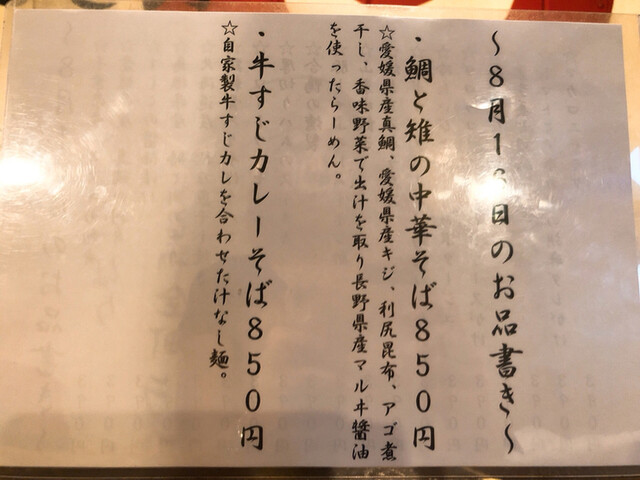 ～８月１ 日のお品書き～
・鯛と雉の中華そば８５０円
☆愛媛県産真鯛、愛媛県産キジ、利尻昆布、アゴ煮
干し、香味野菜で出汁を取り長野県産マルヰ醤油
を使ったらーめん。
・牛すじカレーそば８５０円
☆自家製牛すじカレを合わせた汁なし麺。